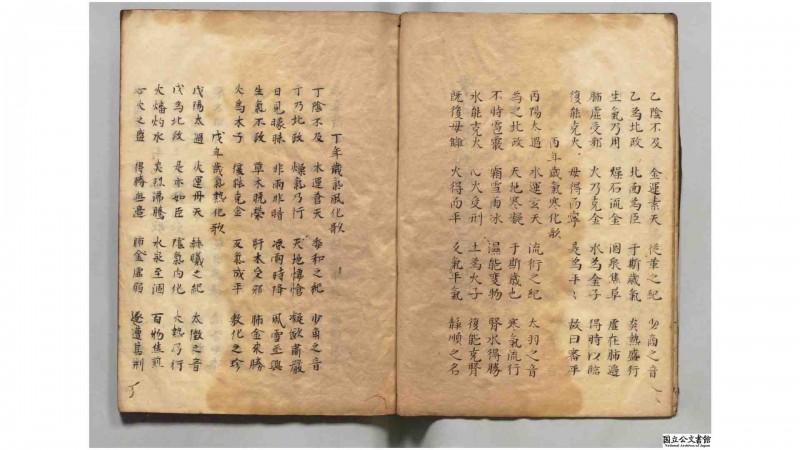 乙陰不及 金運素天 從革之紀 少商之音
乙為北政 北南為臣 于斯歳氣 炎熱盛行
生氣乃用 爍石流金 涸泉焦草 虐在肺邉
肺虚受邪 火乃克金 水為金子 得時以臨
復能克火 母得而寧 是為平 故曰審平
丙年歳氣寒化歌
丙陽太過 水運玄天 流衍之紀 太羽之音
為之北政 天地寒凝 于斯歳也 寒氣流行
不時雹霰 霜雪雨冰 濕能變物 腎水得勝
水能克火 心火受刑 土為火子 復能克腎
既復母讎 火得而平 氣平氣 静順之名
丁年歳氣風化歌
丁陰不及 木運蒼天 委和之紀 少角之音
丁乃北政 燥氣乃行 天地悽愴 凝歛肅嚴
日見曚昧 非雨非晴 凍雨時降 風雪至興
生氣不政 草木晩榮 肝木受邪 肺金來勝
火為木子 復能克金 反氣成平 敷化之珍
戊年歳氣熱化歌
戊陽太過 火運丹天 赫曦之紀 太徴之音
戊為北政 是亦如臣 陰氣内化 火熱乃行
火燔灼水 炎烈沸騰 水泉至涸 百物焦煎
心火之盛 得勝無邉 肺金虚弱 遂遭其刑
国立公文書館
National Archives of Japan